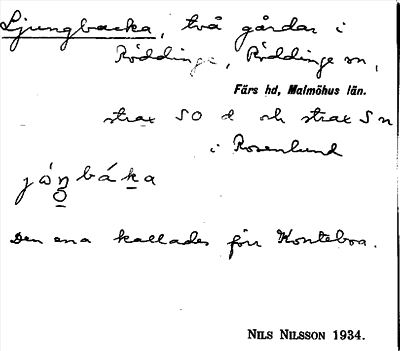 Ljungbacka, två gårdar i
Röddinge, Röddinge sn,
Färs hd, Malmöhus län.
strax SO och strax S
i Rosenlund
Den ena kallades förr Konteboa.
NILS NILSSON 1934.